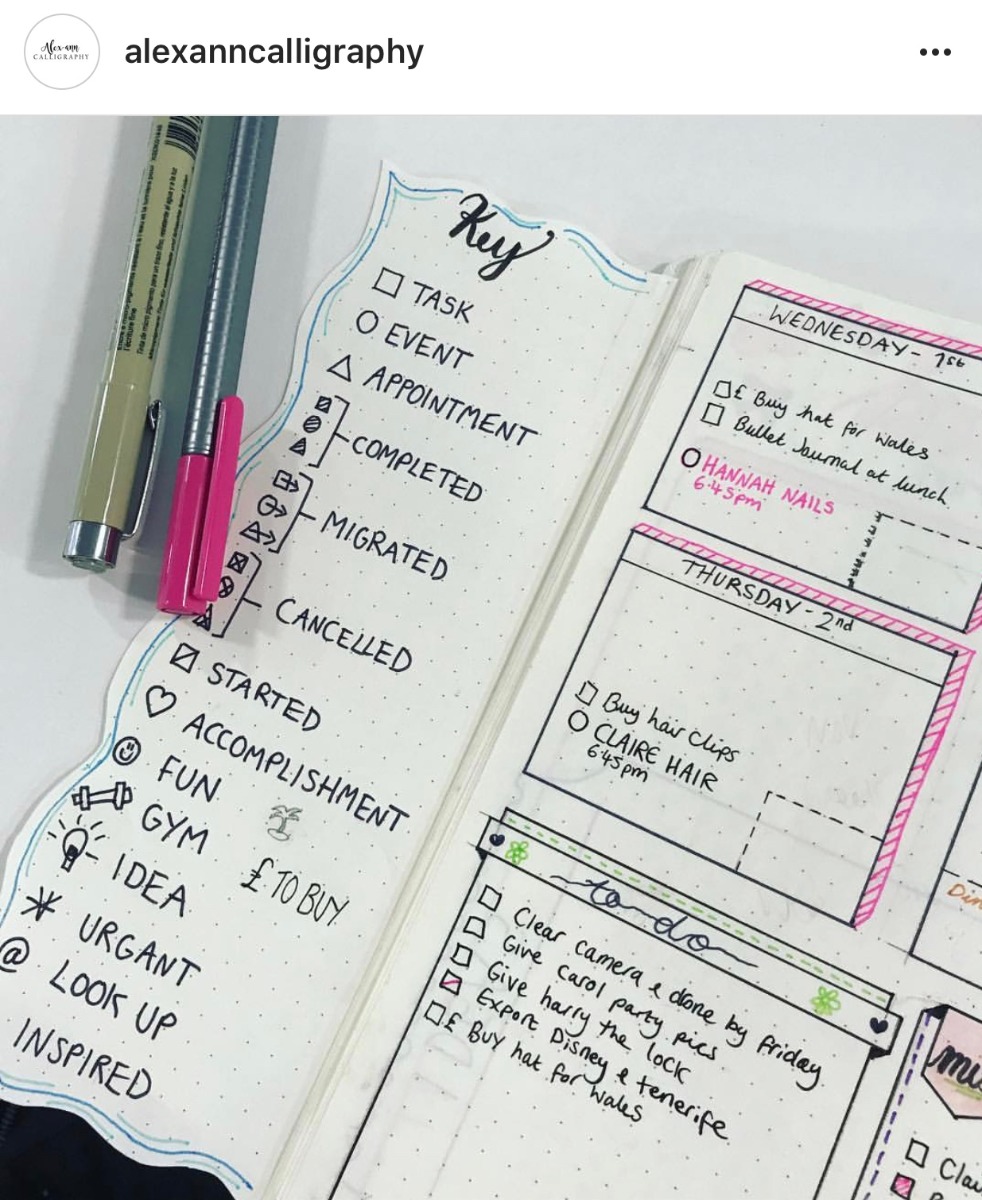 Alex-ann
CALLIGRAPHY
alexanncalligraphy
Key
TASK
EVENT
APPOINTMENT
COMPLETED
MIGRATED
CANCELLED
STARTED
ACCOMPLISHMENT
FUN
GYM
IDEA
£ TO BUY
* URGANT
@ LOOK UP
INSPIRED
WEDNESDAY - 1st
£ Buy hat for Wales
Bullet Journal at lunch
HANNAH NAILS
6:45pm
THURSDAY - 2nd
Buy hair clips
CLAIRE HAIR
6:45pm
to do
Clear camera & drone by friday
Give Carol party pics
Give harry the lock
Export Disney & tenerife
£ Buy hat for Wales